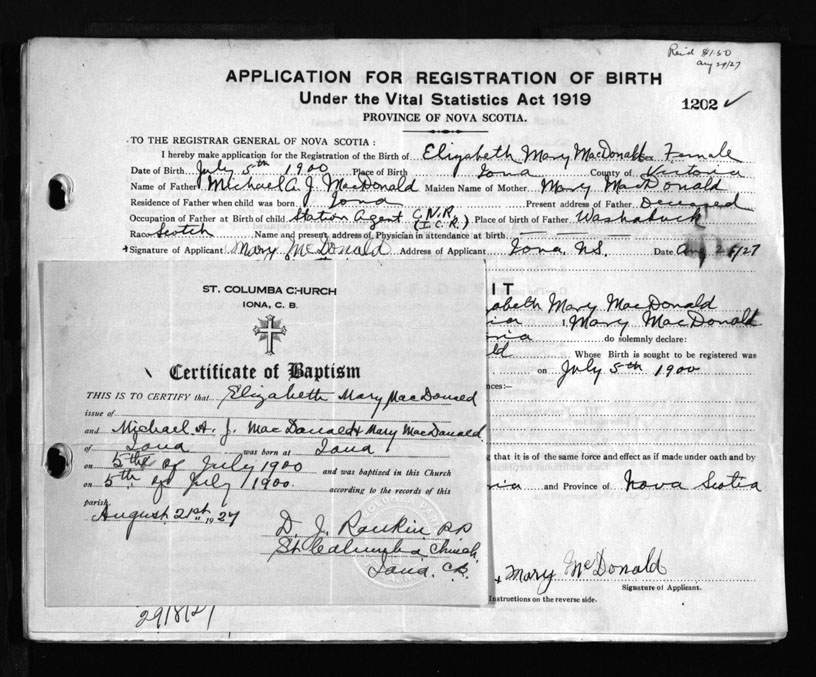 Rec'd $1.50
Aug 29/27
APPLICATION FOR REGISTRATION OF BIRTH
Under the Vital Statistics Act 1919
1202 ✓
PROVINCE OF NOVA SCOTIA.
TO THE REGISTRAR GENERAL OF NOVA SCOTIA:
I hereby make application for the Registration of the Birth of Elizabeth Mary MacDonald Sex Female
Date of Birth July 5th 1900 Place of Birth Iona County of Victoria
Name of Father Michael A. J. MacDonald Maiden Name of Mother Mary MacDonald
Residence of Father when child was born Iona Present address of Father Deceased
Occupation of Father at Birth of child Station Agent C.N.R. (I.C.R.) Place of birth of Father Washabuck
Race Scotch Name and present address of Physician in attendance at birth
Signature of Applicant Mary McDonald Address of Applicant Iona N.S. Date Aug 26/27
ST. COLUMBA CHURCH
IONA, C. B.
Certificate of Baptism
THIS IS TO CERTIFY that Elizabeth Mary MacDonald
issue of
and Michael A. J. MacDonald & Mary MacDonald
of Iona was born at Iona
on 5th of July 1900 and was baptized in this Church
on 5th of July 1900. according to the records of this
parish.
August 21st 1927
D. J. Rankin P.P.
St. Columba Church
Iona, C.B.
IT
abeth Mary MacDonald
ria I, Mary MacDonald
oria do solemnly declare:
ld Whose Birth is sought to be registered was
on July 5th 1900
ces:—
g that it is of the same force and effect as if made under oath and by
ria and Province of Nova Scotia
Mary McDonald
Signature of Applicant.
Instructions on the reverse side.
29/8/27